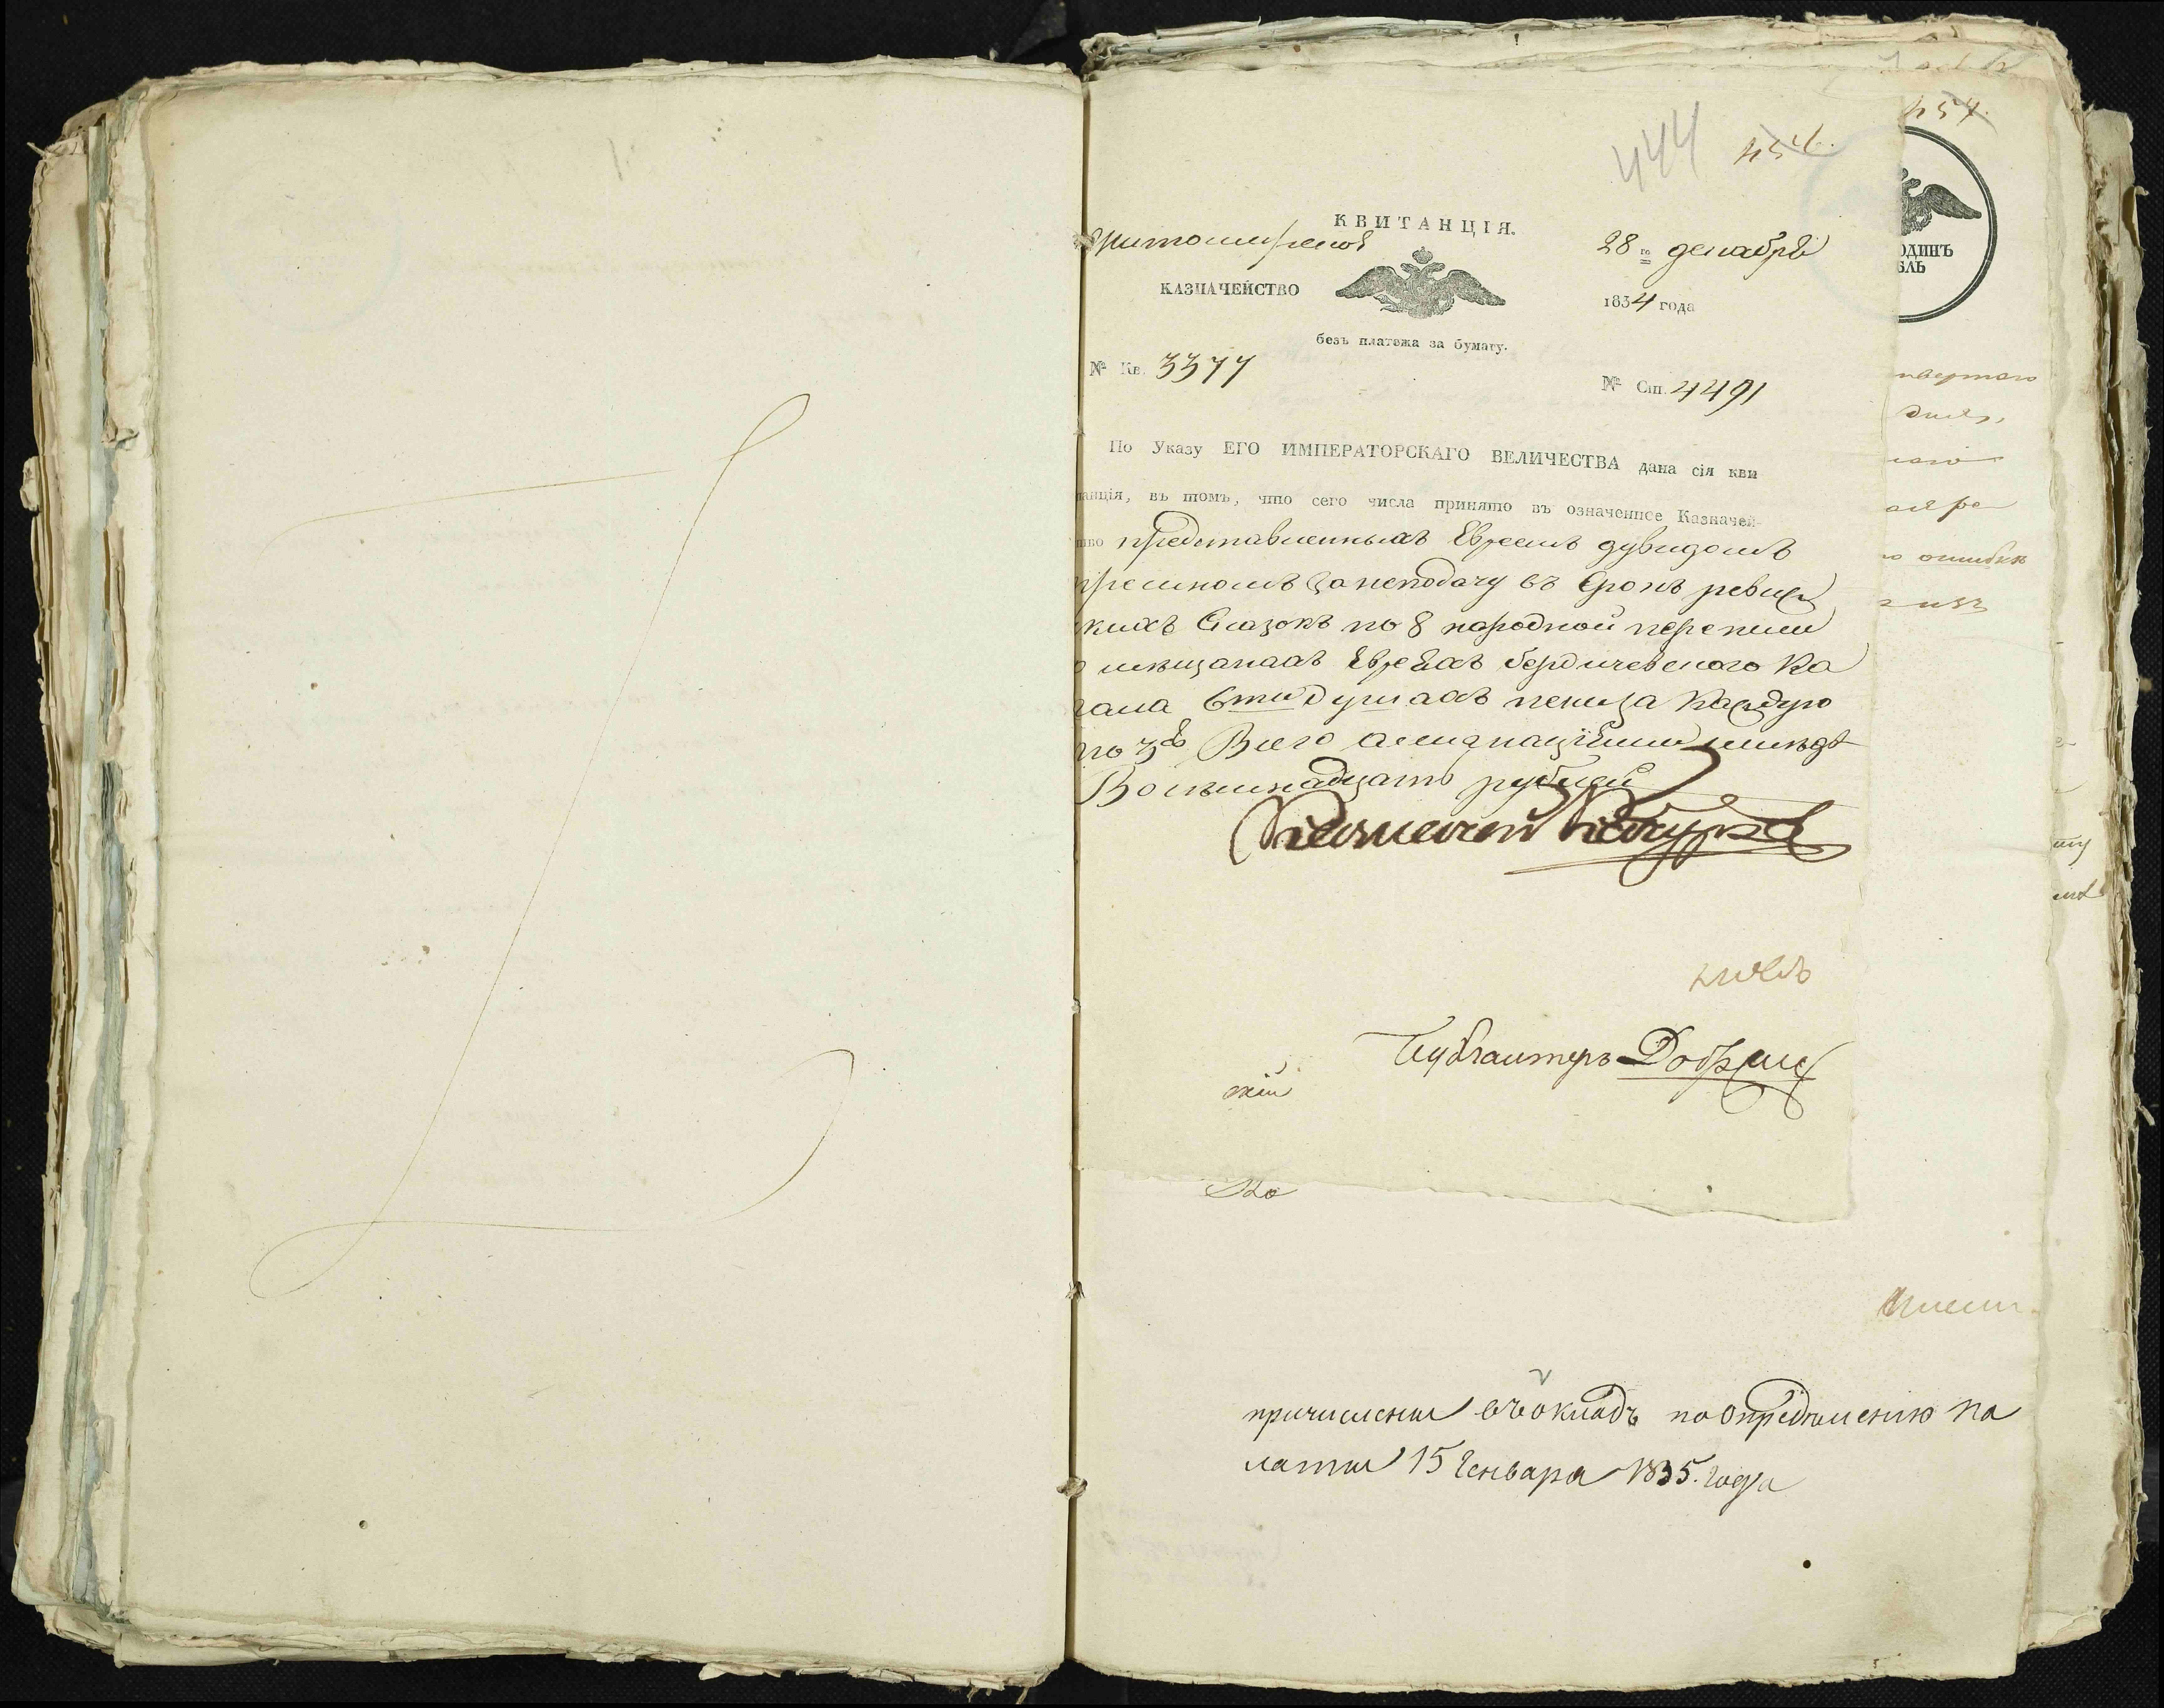 444
454.
454.
КВИТАНЦІЯ.
Житомирское
28го декабря
КАЗНАЧЕЙСТВО
1834 года
ОДИНЪ
БЛЬ
безъ платежа за бумагу.
№ Кв. 3377
№ Ст. 4491
По Указу ЕГО ИМПЕРАТОРСКАГО ВЕЛИЧЕСТВА дана сія кви
танція, въ томъ, что сего числа принято въ означенное Казначей-
ство представленныхъ Евреемъ дувидомъ
за неподачу въ Срокъ ревиз
кихъ Сказокъ по 8 народной переписи
о мѣщанахъ Евреяхъ бердичевского Ка
гала 6ти душахъ пени за Каждую
по 3 Всего ассигнаціями мѣдь
Восемнадцать рублей
Казначей
Бухгалтеръ
кій
Ко
причислены въ окладъ по опредѣленію па
латы 15 Генваря 1835. года